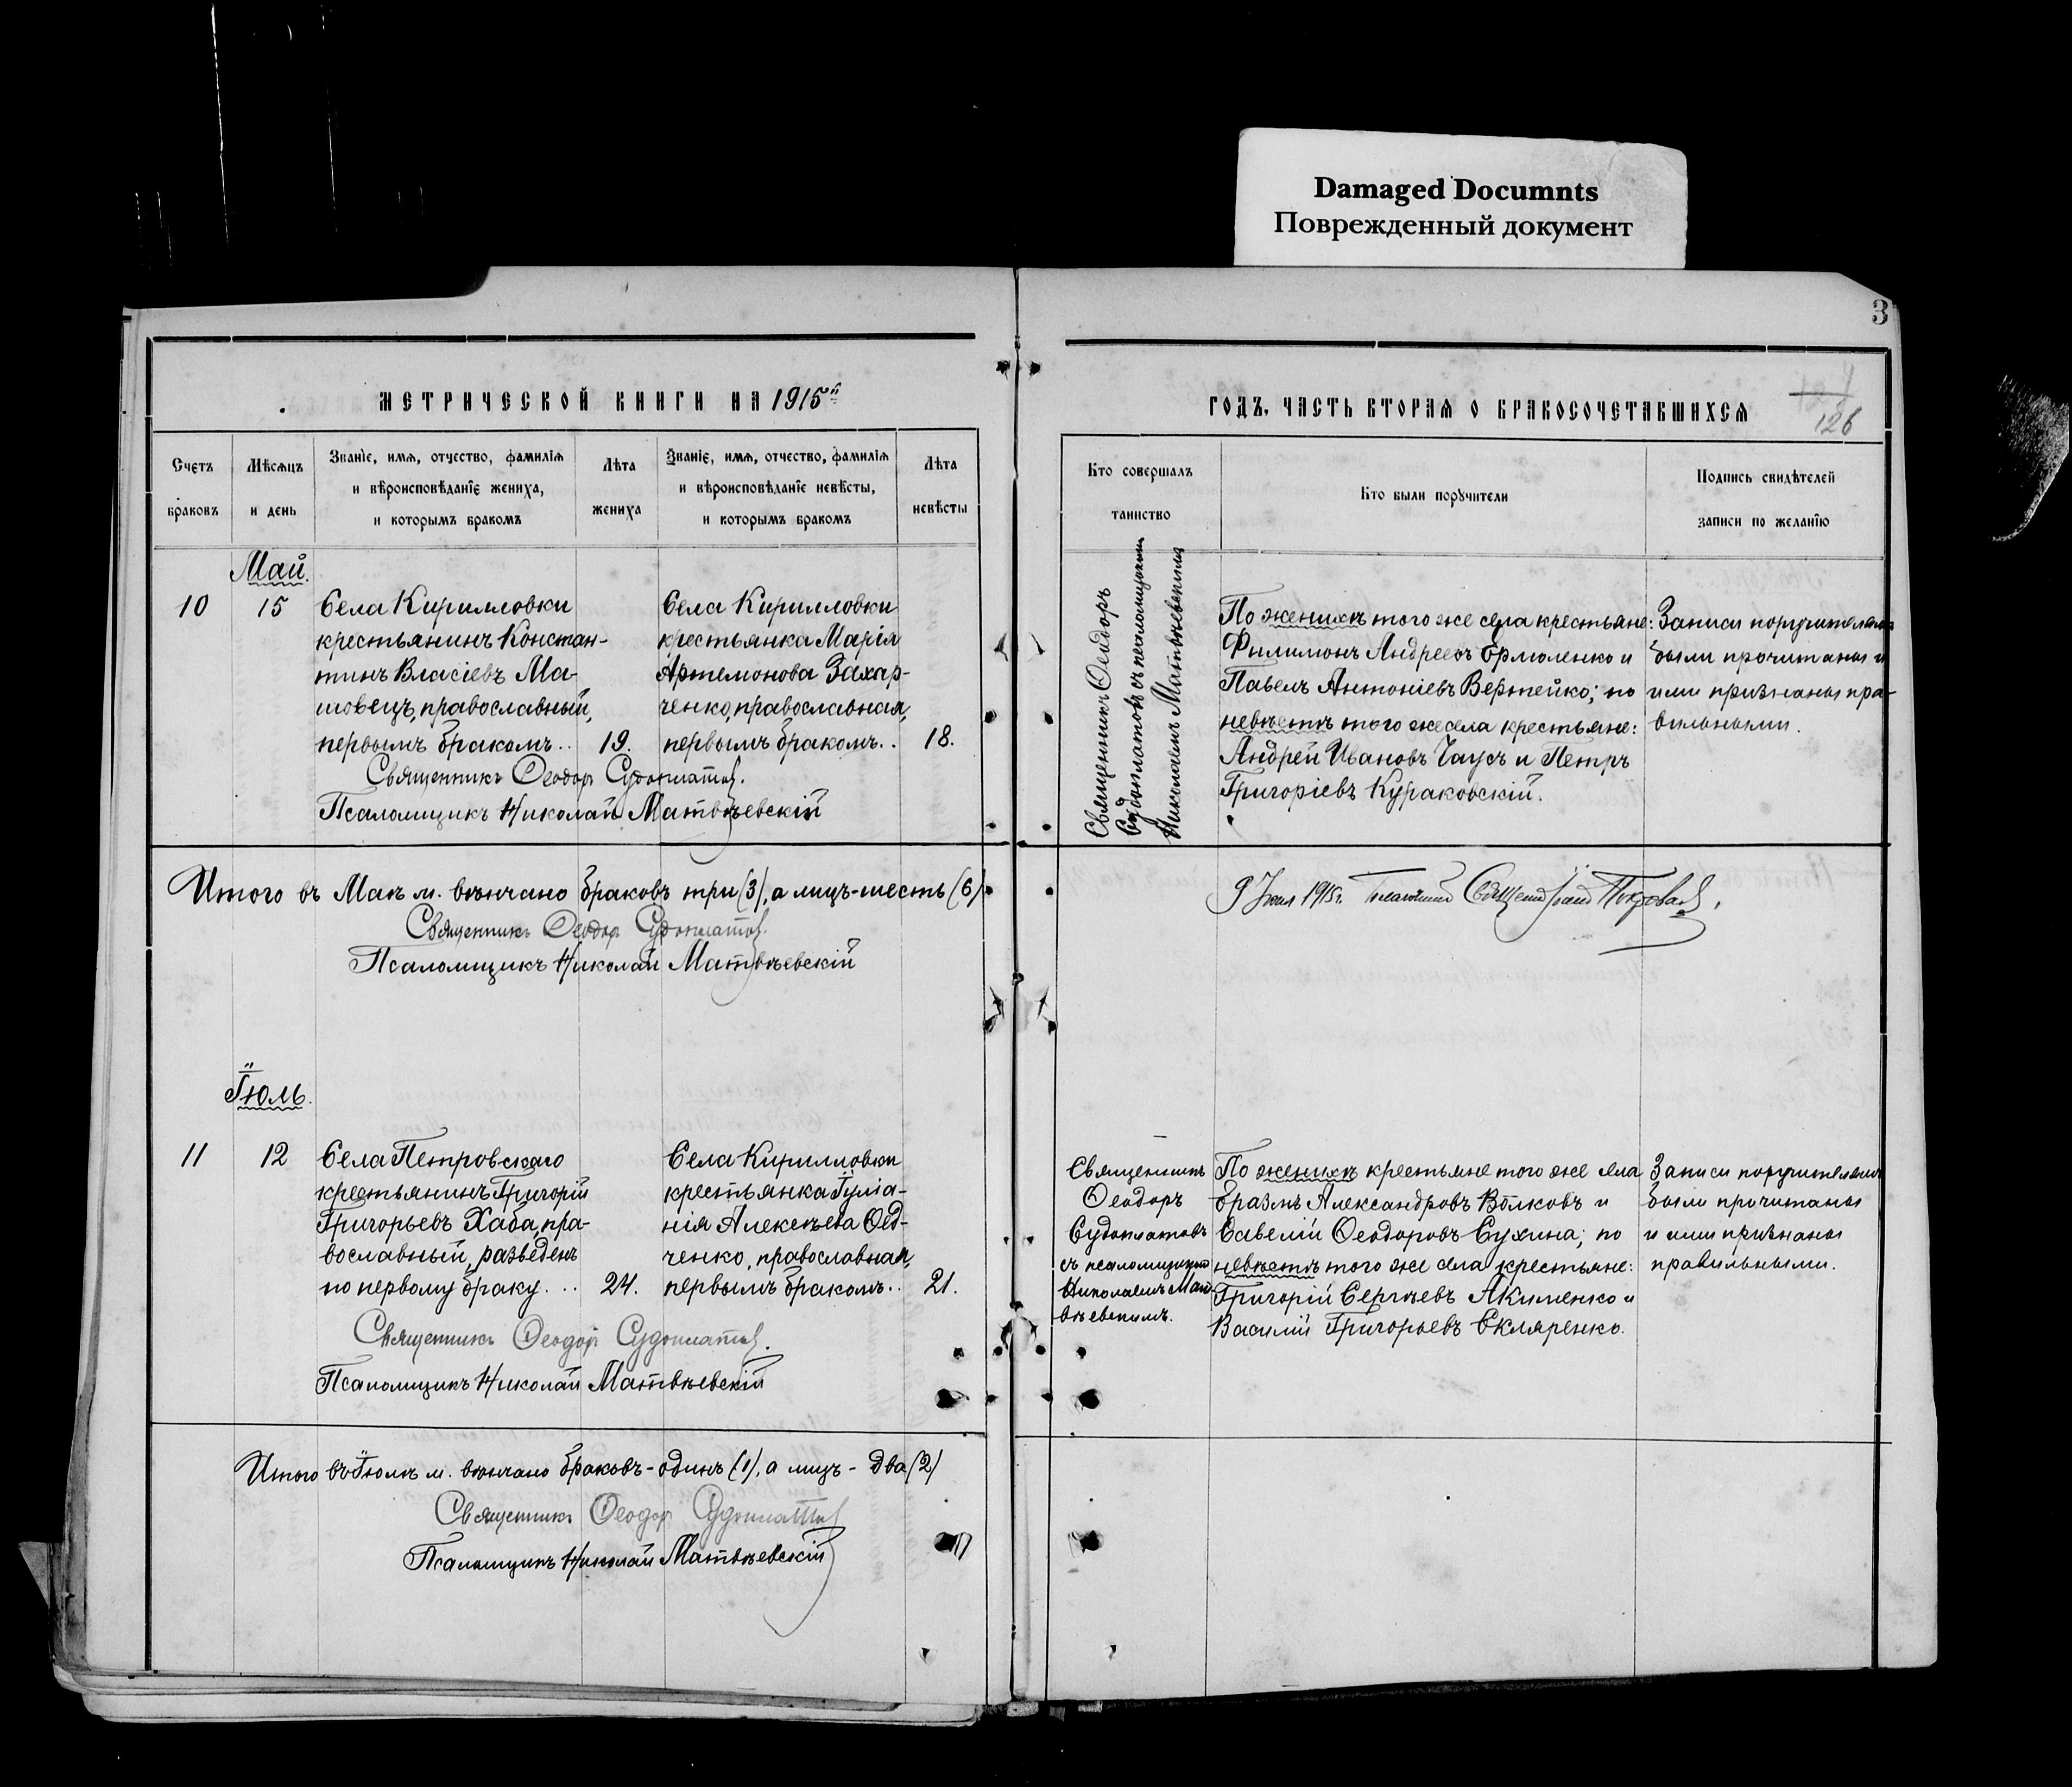 Damaged Documnts
Поврежденный документ
3
126
МЕТРИЧЕСКОЙ КНИГИ НА 1915й
ГОДЪ, ЧАСТЬ ВТОРАЯ О БРАКОСОЧЕТАВШИХСЯ
Счетъ браковъ
Мѣсяцъ и день
Званіе, имя, отчество, фамилія
и вѣроисповѣданіе жениха,
и которымъ бракомъ
Лѣта жениха
Званіе, имя, отчество, фамилія
и вѣроисповѣданіе невѣсты,
и которымъ бракомъ
Лѣта невѣсты
Кто совершалъ
таинство
Кто были поручители
Подпись свидѣтелей
записи по желанію
Май.
10
15
Села Кирилловки
крестьянинъ Констан-
тинъ Власіевъ Ма-
шовецъ, православный,
первымъ бракомъ..
19.
Села Кирилловки
крестьянка Марія
Артемонова Захар-
ченко, православная,
первымъ бракомъ..
18.
Священникъ Ѳеодоръ Судоплатов.
Псаломщикъ Николай Матвѣевскій
Священникъ Ѳеодоръ
Судоплатовъ съ псаломщикомъ
Николаемъ Матвѣевскимъ
По женихѣ того же села крестьяне:
Филимонъ Андреевъ Ермоленко и
Павелъ Антоніевъ Вертейко; по
невѣстѣ того же села крестьяне:
Андрей Ивановъ Чаусъ и Петръ
Григоріевъ Кураковскій.
Записи поручителямъ
были прочитаны и
ими признаны пра-
вильными.
Итого въ Маѣ м. вѣнчано браковъ три (3), а лицъ-шесть (6)
Священникъ Ѳеодоръ Судоплатов.
Псаломщикъ Николай Матвѣевскій
9 1915г. Священ
Іюль.
11
12
Села Петровскаго
крестьянинъ Григорій
Григорьевъ Хаба, пра-
вославный, разведенъ
по первому браку...
24.
Села Кирилловки
крестьянка Іуліа-
нія Алексѣева Ѳед-
ченко, православная,
первымъ бракомъ..
21.
Священникъ Ѳеодоръ Судоплатов.
Псаломщикъ Николай Матвѣевскій
Священникъ
Ѳеодоръ
Судоплатовъ
съ псаломщикомъ
Николаемъ Мат-
вѣевскимъ.
По женихѣ крестьяне того же села
Еразмъ Александровъ Волковъ и
Савелій Ѳеодоровъ Сухина; по
невѣстѣ того же села крестьяне:
Григорій Сергѣевъ Акименко и
Василій Григорьевъ Скляренко.
Записи поручителямъ
были прочитаны
и ими признаны
правильными.
Итого въ Іюлѣ м. вѣнчано браковъ-одинъ (1), а лицъ- два (2)
Священникъ Ѳеодоръ Судоплатов
Псаломщикъ Николай Матвѣевскій